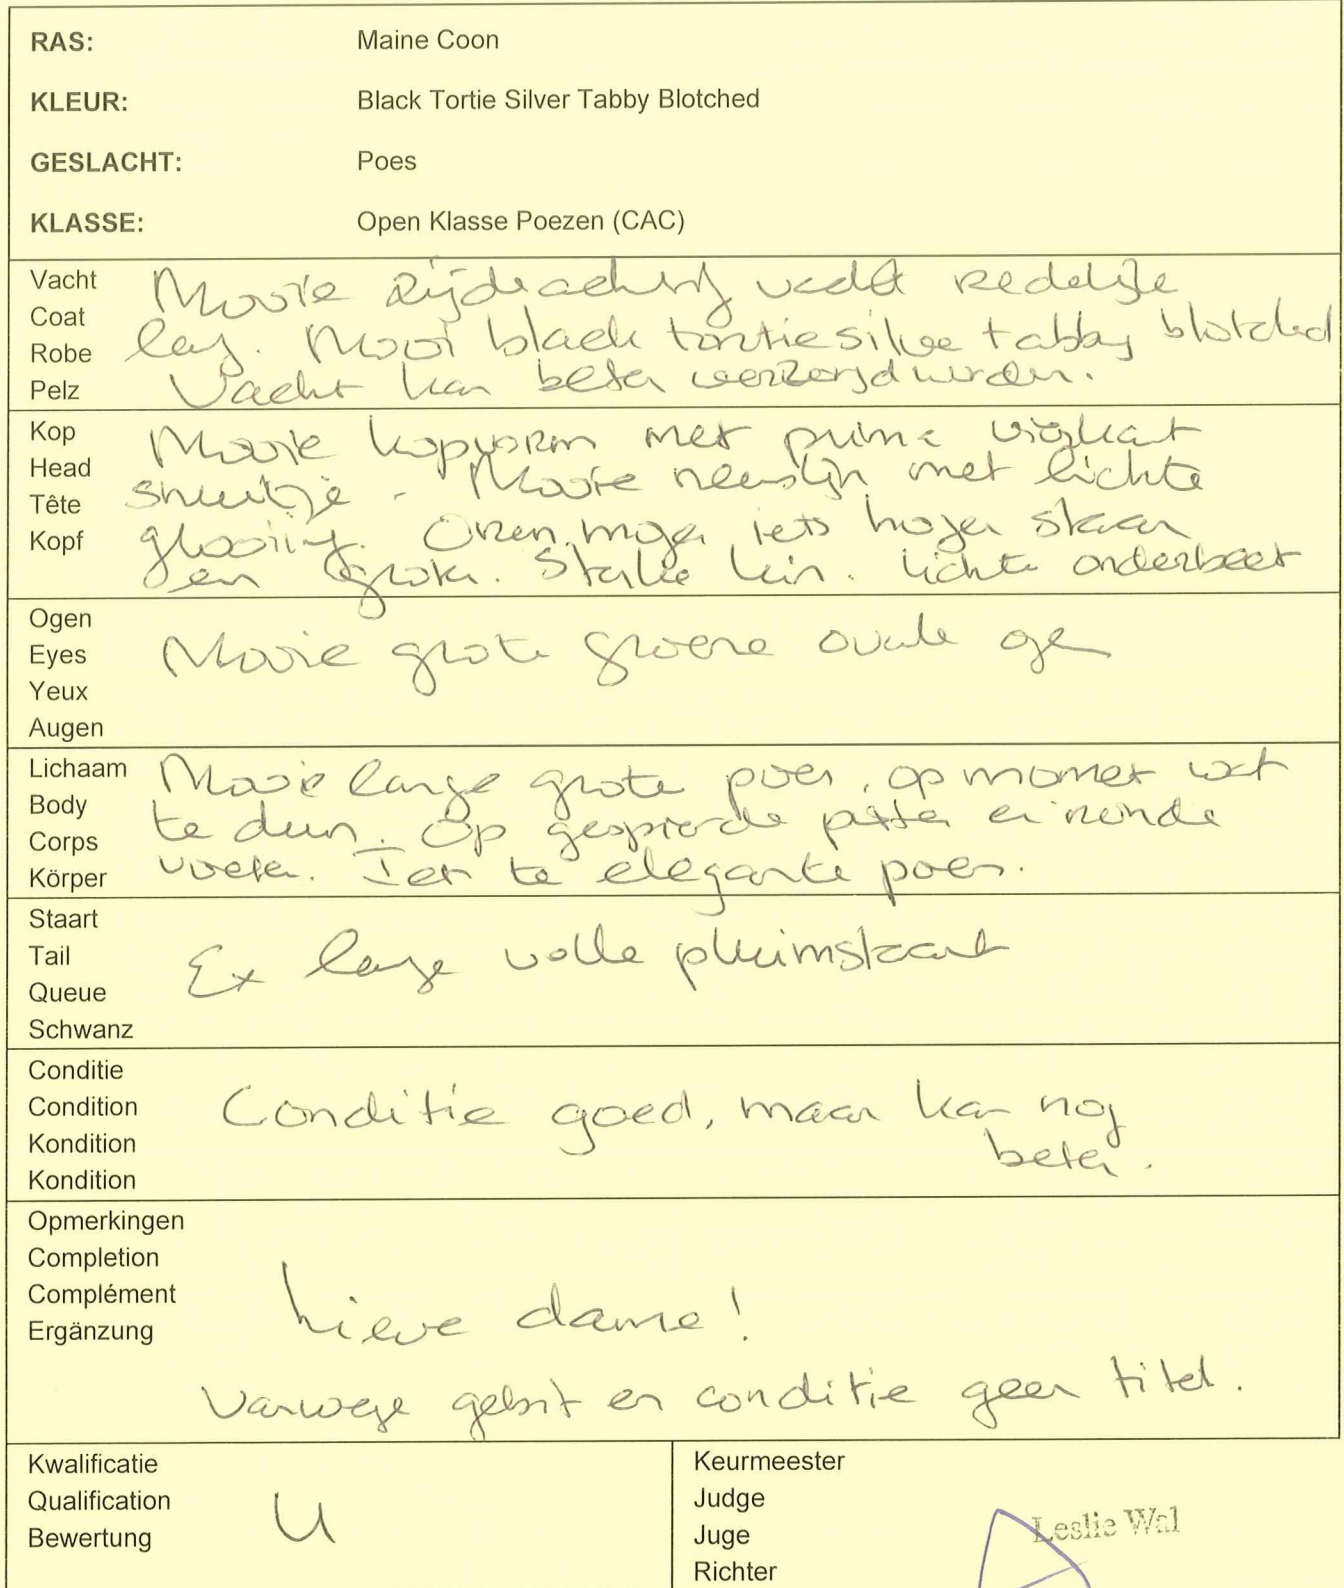 RAS: Maine Coon
KLEUR: Black Tortie Silver Tabby Blotched
GESLACHT: Poes
KLASSE: Open Klasse Poezen (CAC)
Vacht
Coat
Robe
Pelz
Mooie zijdeachtig vacht redelijke
lang. Mooi black tortie silver tabby blotched
Vacht kan beter verzorgd worden.
Kop
Head
Tête
Kopf
Mooie kopvorm met prima vierkant
snuitje. Mooie neuslijn met lichte
glooiing. Oren mogen iets hoger staan
en groter. Sterke kin. lichte onderbeet
Ogen
Eyes
Yeux
Augen
Mooie grote groene ovale ogen
Lichaam
Body
Corps
Körper
Mooie lange grote poes, op moment wat
te dun. Op gespierde poten en ronde
voeten. Iets te elegante poes.
Staart
Tail
Queue
Schwanz
Ex lange volle pluimstaart
Conditie
Condition
Kondition
Kondition
Conditie goed, maar kan nog
beter.
Opmerkingen
Completion
Complément
Ergänzung
Lieve dame!
Vanwege gebit en conditie geen titel.
Kwalificatie
Qualification
Bewertung
U
Keurmeester
Judge
Juge
Richter
Leslie Wal